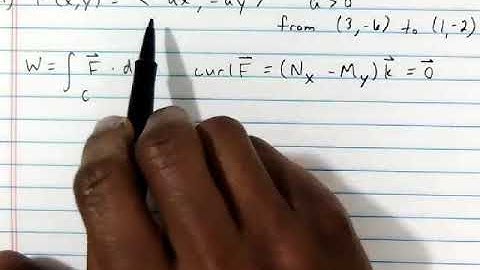 F(x,y) = < ax, -ay > a > 0
from (3,-6) to (1,-2)
W = ∫ F⃗ · d curl F⃗ = (Nₓ - Mᵧ) k⃗ = 0⃗
C